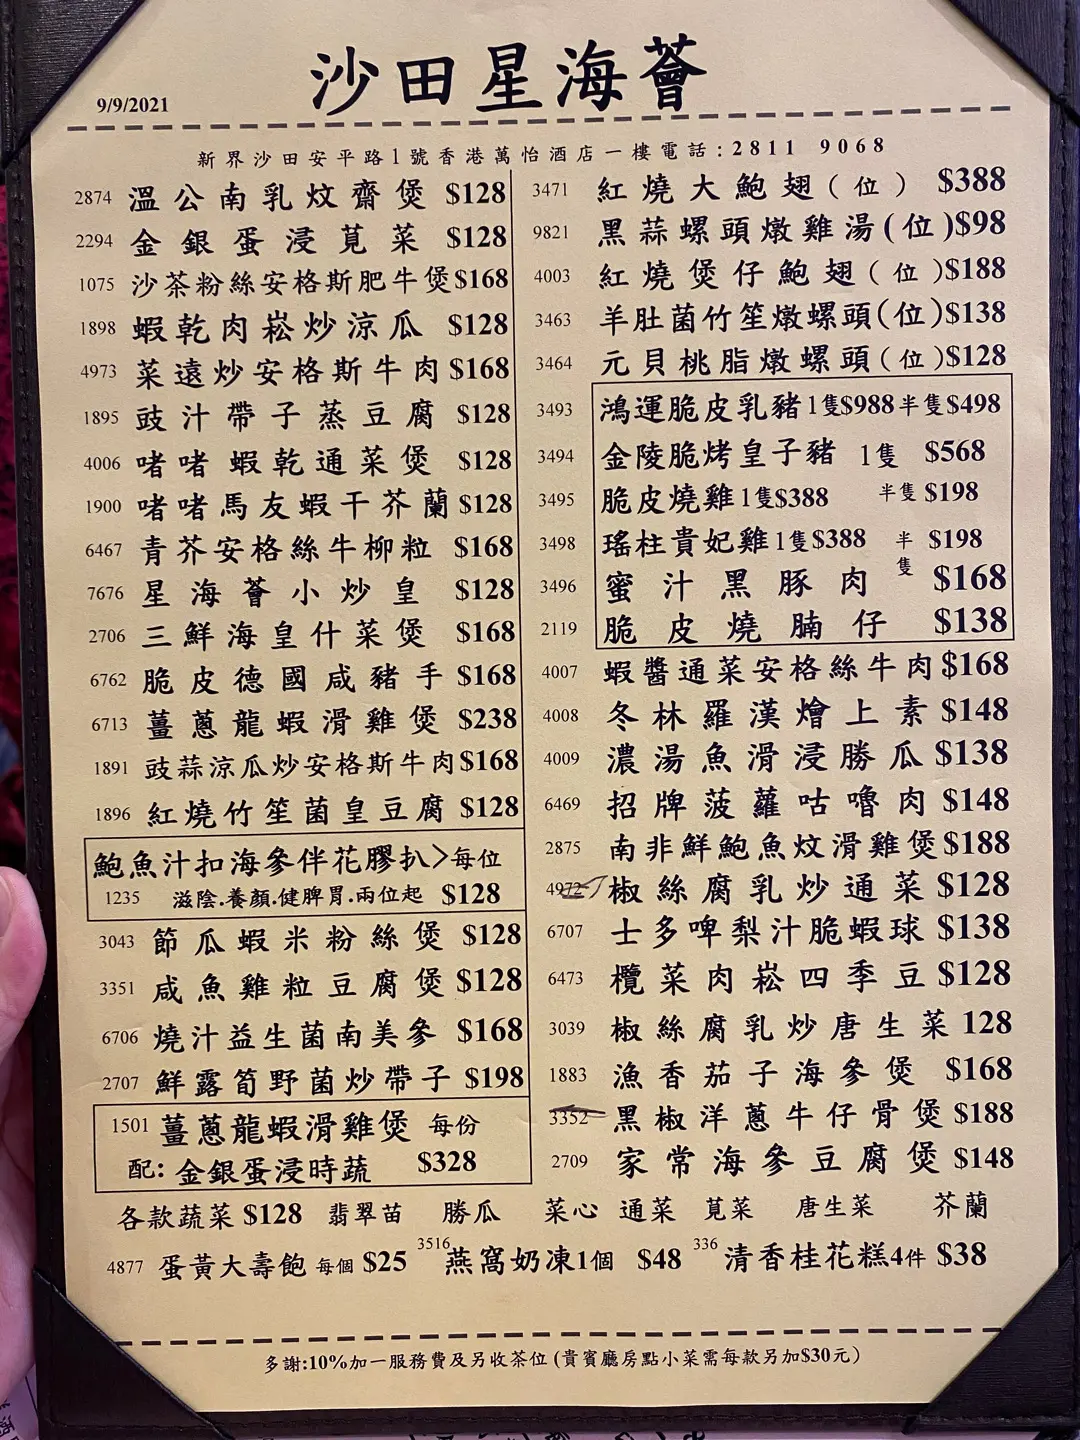 沙田星海薈
9/9/2021
新界沙田安平路1號香港萬怡酒店一樓電話:2811 9068
2874 溫公南乳炆齋煲 $128
2294 金銀蛋浸莧菜 $128
1075 沙茶粉絲安格斯肥牛煲$168
1898 蝦乾肉崧炒涼瓜 $128
4973 菜遠炒安格斯牛肉$168
1895 豉汁帶子蒸豆腐 $128
4006 啫啫蝦乾通菜煲 $128
1900 啫啫馬友蝦干芥蘭$128
6467 青芥安格絲牛柳粒 $168
7676 星海薈小炒皇 $128
2706 三鮮海皇什菜煲 $168
6762 脆皮德國咸豬手 $168
6713 薑蔥龍蝦滑雞煲 $238
1891 豉蒜涼瓜炒安格斯牛肉$168
1896 紅燒竹笙菌皇豆腐 $128
鮑魚汁扣海參伴花膠扒>每位
1235 滋陰.養顏.健脾胃.兩位起 $128
3043 節瓜蝦米粉絲煲 $128
3351 咸魚雞粒豆腐煲 $128
6706 燒汁益生菌南美參 $168
2707 鮮露筍野菌炒帶子 $198
1501 薑蔥龍蝦滑雞煲 每份
配: 金銀蛋浸時蔬 $328
3471 紅燒大鮑翅(位) $388
9821 黑蒜螺頭燉雞湯(位)$98
4003 紅燒煲仔鮑翅(位)$188
3463 羊肚菌竹笙燉螺頭(位)$138
3464 元貝桃脂燉螺頭(位)$128
3493 鴻運脆皮乳豬1隻$988半隻$498
3494 金陵脆烤皇子豬 1隻 $568
3495 脆皮燒雞1隻$388 半隻 $198
3498 瑤柱貴妃雞1隻$388 半隻 $198
3496 蜜汁黑豚肉 $168
2119 脆皮燒腩仔 $138
4007 蝦醬通菜安格絲牛肉$168
4008 冬林羅漢燴上素 $148
4009 濃湯魚滑浸勝瓜 $138
6469 招牌菠蘿咕嚕肉 $148
2875 南非鮮鮑魚炆滑雞煲$188
4972 椒絲腐乳炒通菜 $128
6707 士多啤梨汁脆蝦球 $138
6473 欖菜肉崧四季豆 $128
3039 椒絲腐乳炒唐生菜 128
1883 漁香茄子海參煲 $168
3352 黑椒洋蔥牛仔骨煲 $188
2709 家常海參豆腐煲 $148
各款蔬菜 $128 翡翠苗 勝瓜 菜心 通菜 莧菜 唐生菜 芥蘭
4877 蛋黃大壽飽 每個 $25 3516 燕窩奶凍1個 $48 336 清香桂花糕4件 $38
多謝:10%加一服務費及另收茶位 (貴賓廳房點小菜需每款另加$30元)